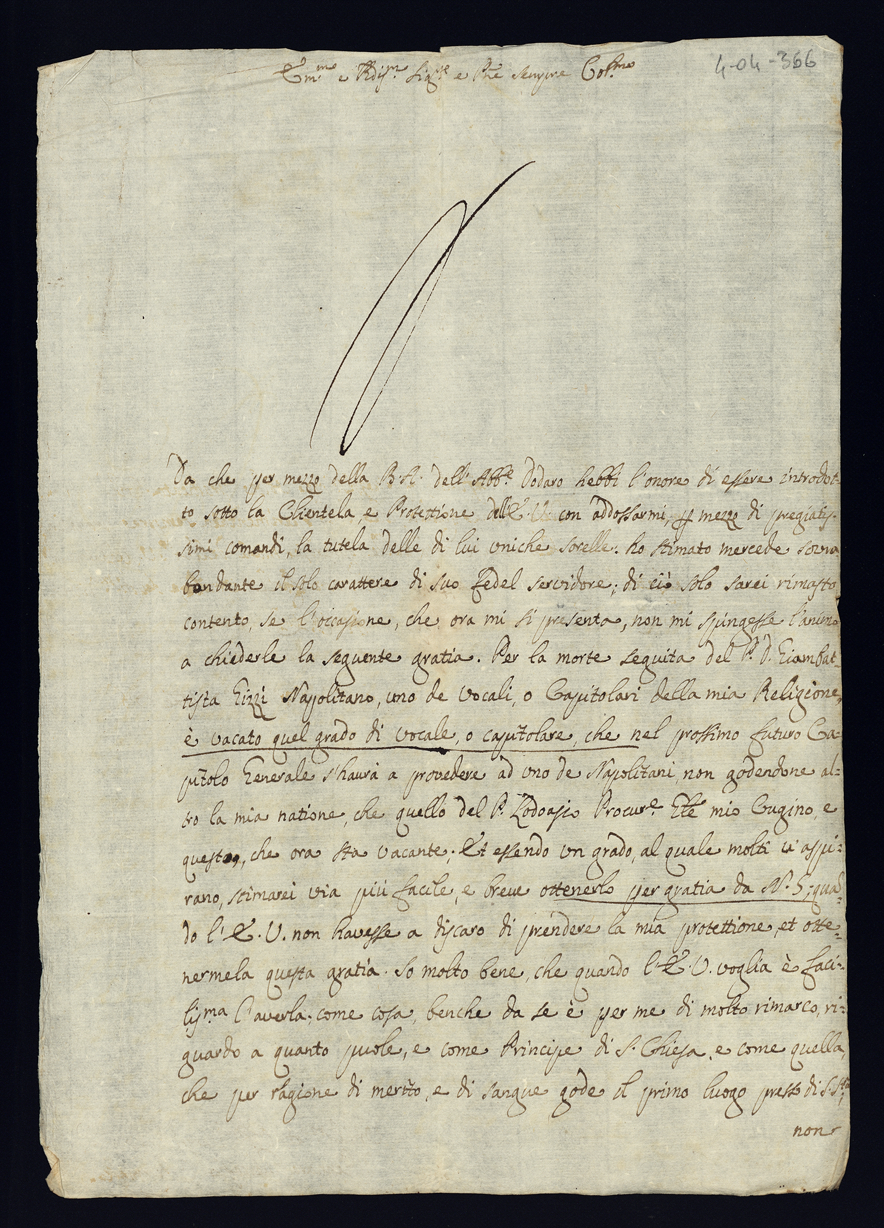 4-04-366
Em.mo e Rev.mo Sig.re e P̄ne sempre Col.mo
Da che per mezzo della B.A. dell'Abb.e Dodaro hebbi l'onore di essere introdot-
to sotto la Clientela, e Protettione dell'E.V. con addossarmi, per mezzo di pregiatis-
simi comandi, la tutela delle di lui uniche sorelle: ho stimato mercede sovra
bondante il solo carattere di suo fedel servidore; di ciò solo sarei rimasto
contento, se l'occasione, che ora mi si presenta, non mi spingesse l'animo
a chiederle la seguente gratia. Per la morte seguita del P. D. Giambat-
tista Gizzi Napolitano, uno de Vocali, o Capitolari della mia Religione,
è vacato quel grado di vocale, o capitolare, che nel prossimo futuro Ca-
pitolo Generale s'haurà a provedere ad uno de Napolitani, non godendone al-
tro la mia natione, che quello del P. Lodoasio Procur.e Gñle mio Cugino, e
questo, che ora sta vacante; Et essendo un grado, al quale molti vi aspi-
rano, stimarei via più facile, e breve ottenerlo per gratia da N.S., qua-
do l'E.V. non havesse a discaro di prendere la mia protettione, et otte-
nermela questa gratia. So molto bene, che quando l'E.V. voglia è faci-
lis.ma l'averla; come cosa, benche da se è per me di molto rimarco, ri-
guardo a quanto puole, e come Principe di S. Chiesa, e come quella,
che per ragione di merito, e di sangue gode il primo luogo presso di S. S.tà;
non